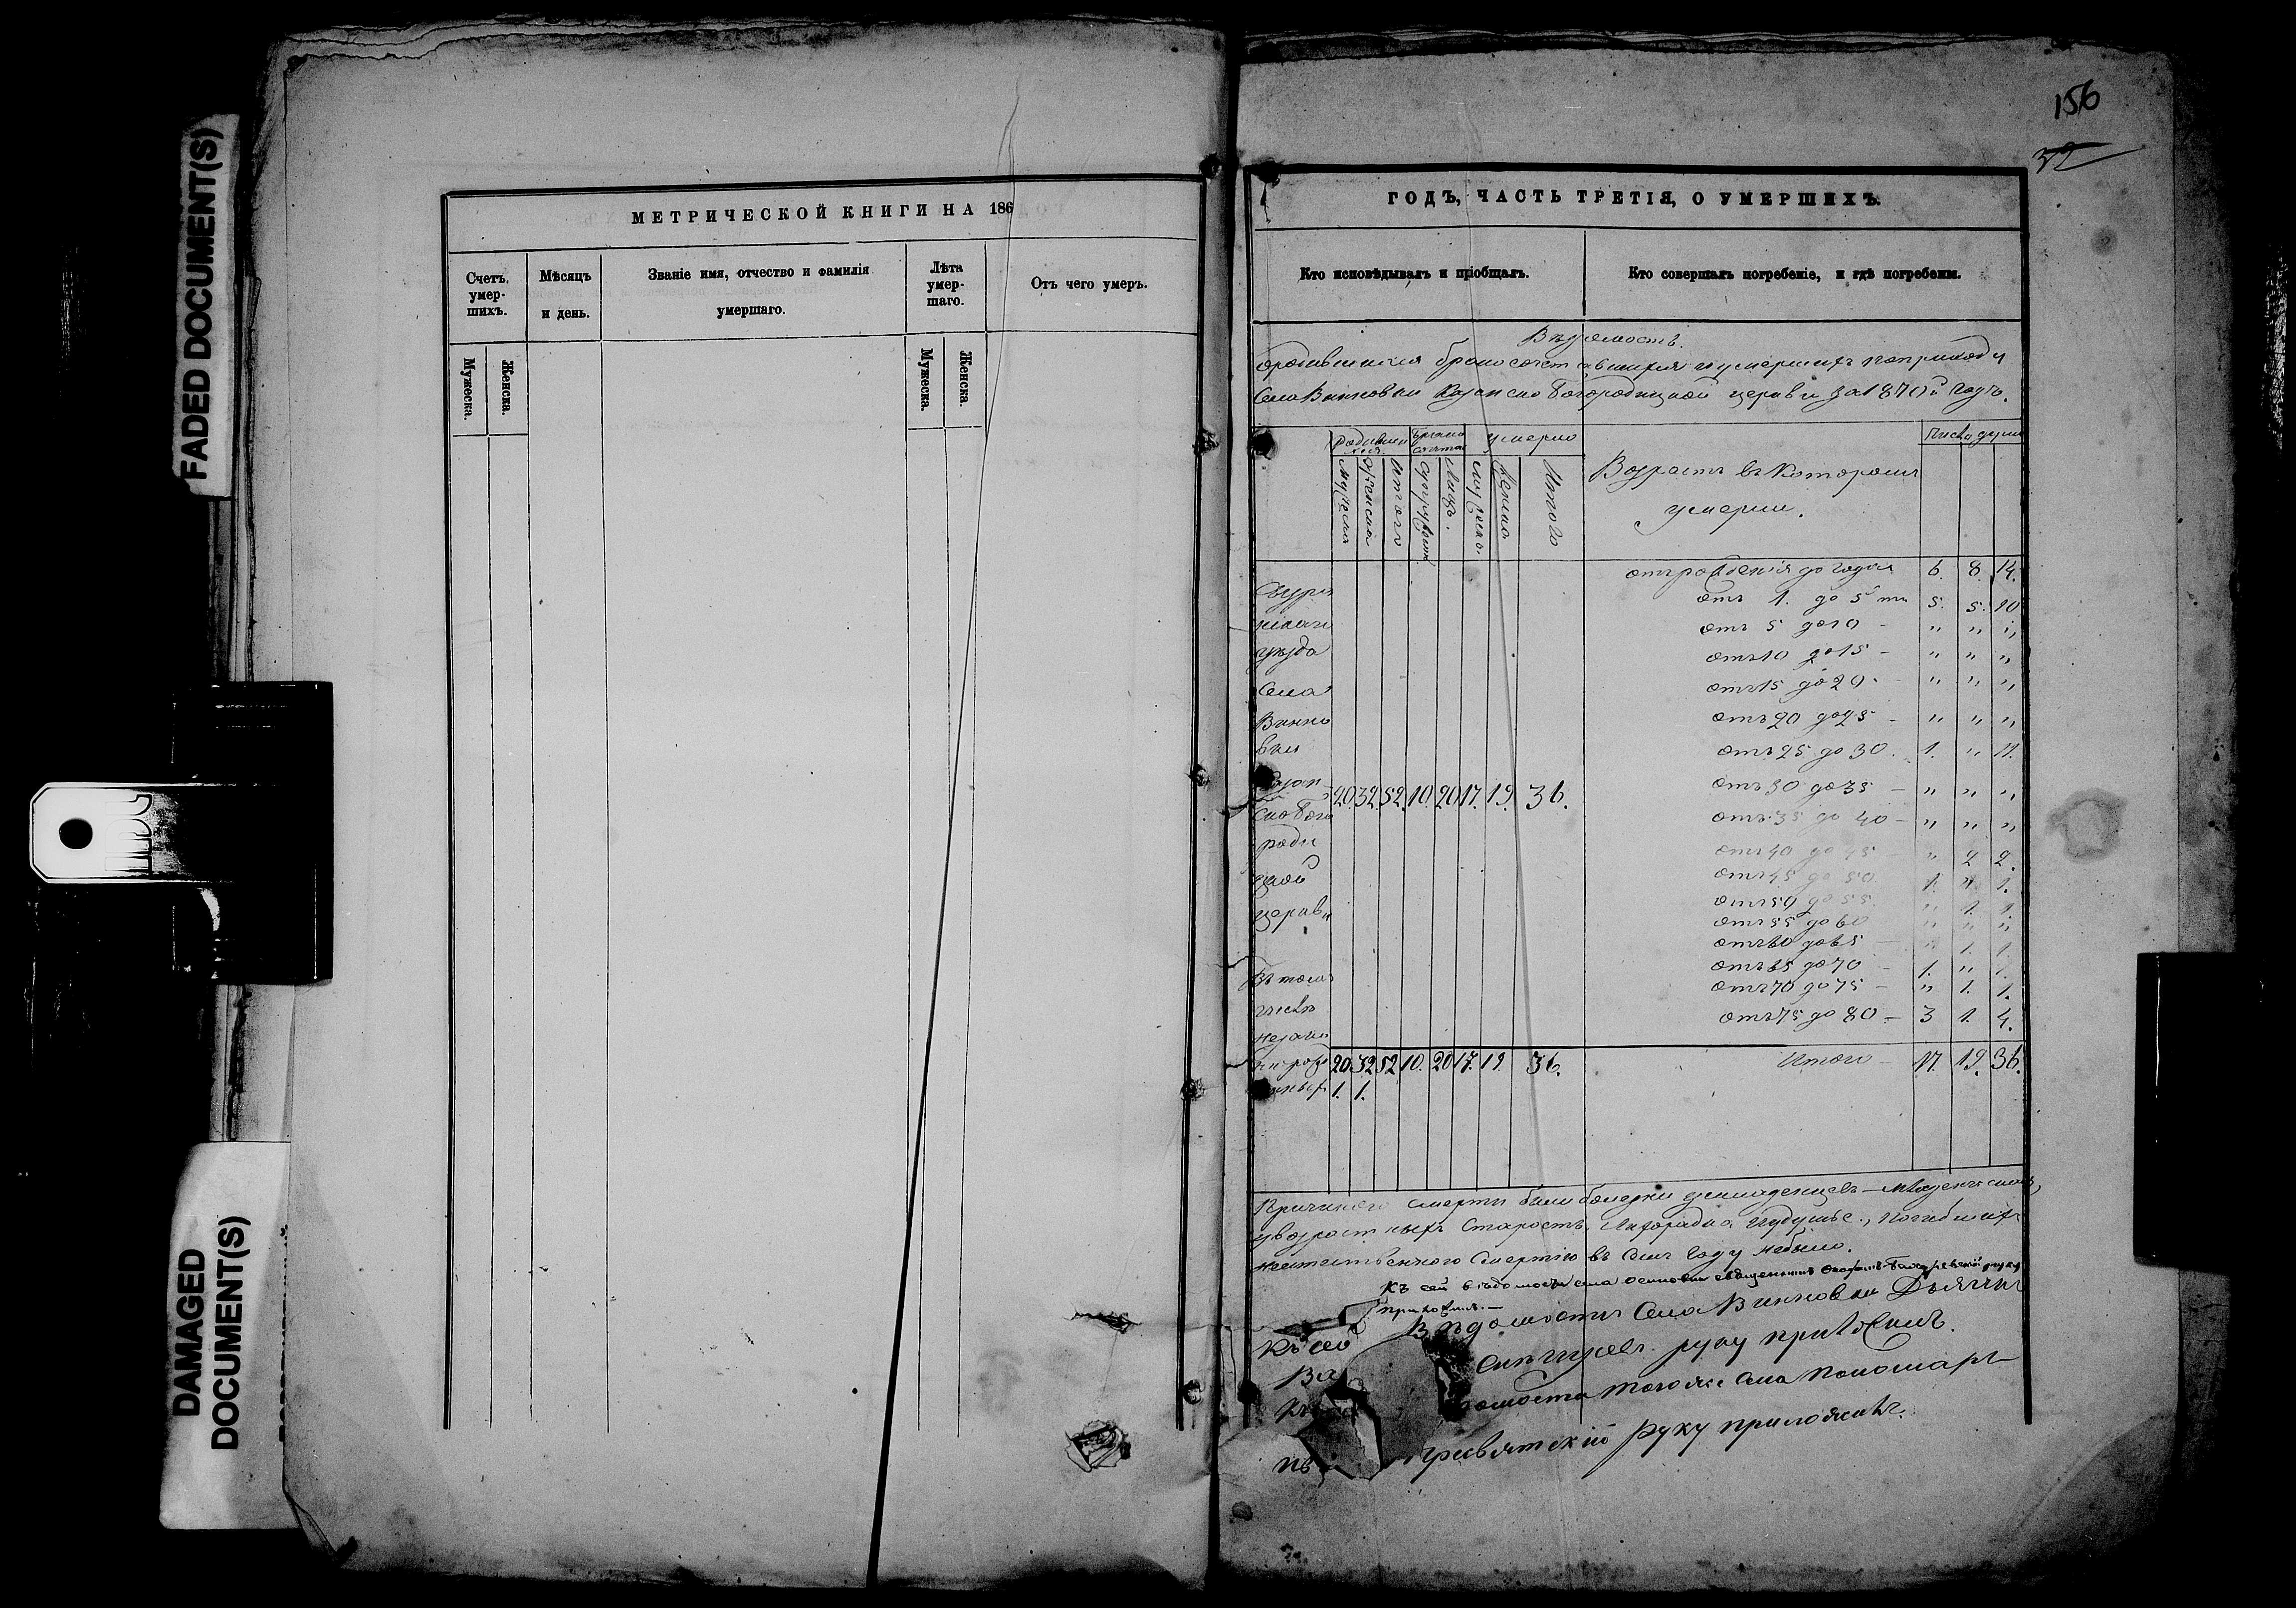 FADED DOCUMENT(S)
DAMAGED
DOCUMENT(S)
МЕТРИЧЕСКОЙ КНИГИ НА 186
Счетъ умер-шихъ.
Мѣсяцъ и день.
Званіе имя, отчество и фамилія умершаго.
Лѣта умер-шаго.
Отъ чего умеръ.
Мужеска.
Женска.
Мужеска.
Женска.
156
32
ГОДЪ, ЧАСТЬ ТРЕТІЯ, О УМЕРШИХЪ.
Кто исповѣдывалъ и пріобщалъ.
Кто совершалъ погребеніе, и гдѣ погребены.
Вѣдомость.
о родившихся бракосочетавшихся и умершихъ по приходу
села Винновки Казанско Богородицкой церкви за 1870й годъ.
родивши хся.
умерло
Число душъ
Мужеска
Женска
Итого
Супружествъ
Лицъ.
Мужеска.
Женска
Итого
Возрастъ въ которомъ
умерли.
отъ рожденія до года 6. 8. 14.
отъ 1. до 5ти 5. 5. 10
отъ 5 до 10 - " " "
отъ 10 до 15 - " " "
отъ 15 до 20 - " " "
отъ 20 до 25 - " " "
отъ 25 до 30. 1. "
отъ 30 до 35 - " " "
отъ 35 до 40 - " " "
отъ 40 до 45 " 2 2.
отъ 45 до 50 1. " 1.
отъ 50 до 55 " 1. 1.
отъ 55 до 60 " " "
отъ 60 до 65 - " 1. 1.
отъ 65 до 70 - 1. " 1.
отъ 70 до 75 - " 1. 1.
отъ 75 до 80 - 3 1. 4.
Итого 17. 19. 36.
уѣзда
Села
Винно
вки
Казан
ско Бого
роди
цкой
церкви
20. 32. 52. 10. 20 17. 19. 36.
Въ томъ
числѣ
незако
нно рож
нныхъ
20 32 52 10. 20 17. 19. 36.
1. 1.
Причиною смерти были болезни у младенцевъ - младенческая,
у возрастныхъ Старость, Лихорадка, удушье, погибшихъ
неестественною Смертію въ семъ году небыло.
Къ сей вѣдомости села священникъ руку
приложилъ. -
Къ сей Вѣдомости Села Винновки Дьячекъ
руку приложилъ.
домости того же села пономарь
руку приложилъ.